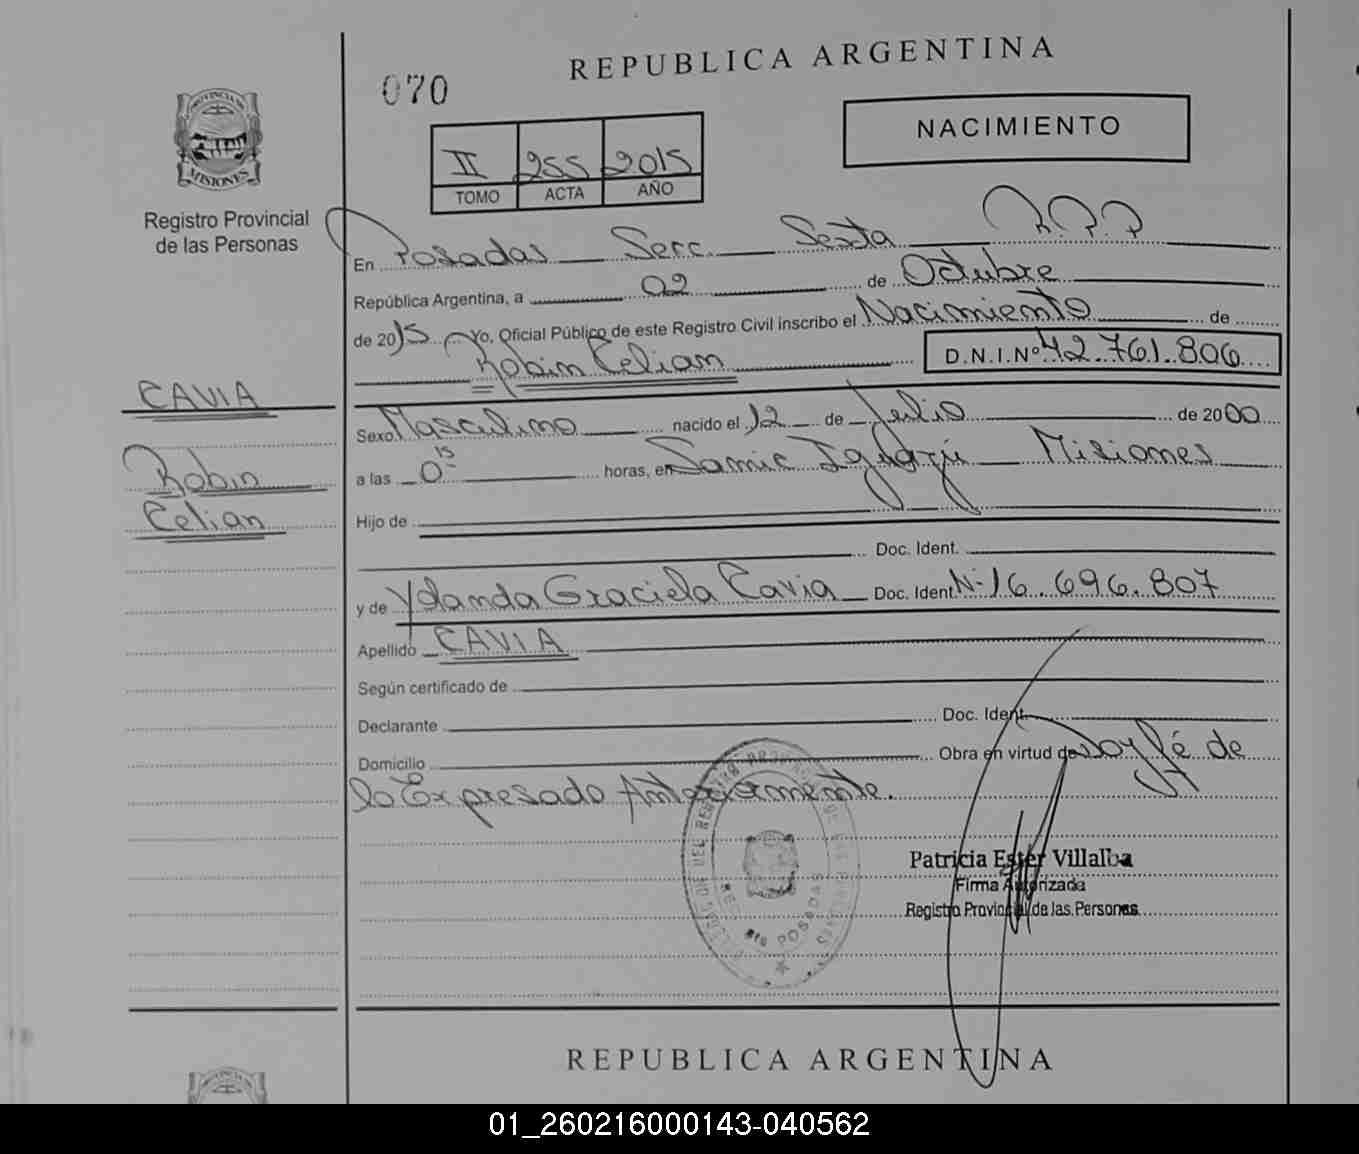 REPUBLICA ARGENTINA
070
NACIMIENTO
II 255 2015
TOMO ACTA AÑO
PROVINCIA DE
MISIONES
Registro Provincial
de las Personas
En Posadas Secc. Sexta R.P.P
República Argentina, a 02 de Octubre
de 2015 Yo, Oficial Público de este Registro Civil inscribo el Nacimiento de
Robin Celian D.N.I.Nº 42.761.806
CAVIA
Robin
Celian
Sexo Masculino nacido el 12 de Julio de 2000
a las 0 15 horas, en Samic Iguazú Misiones
Hijo de
Doc. Ident.
y de Yolanda Graciela Cavia Doc. Ident Nº 16.696.807
Apellido CAVIA
Según certificado de
Declarante Doc. Ident.
Domicilio Obra en virtud de Doy fé de
lo Expresado Anteriormente.
POSADAS
Patricia Ester Villalba
Firma Autorizada
Registro Provincial de las Personas
REPUBLICA ARGENTINA
01_260216000143-040562